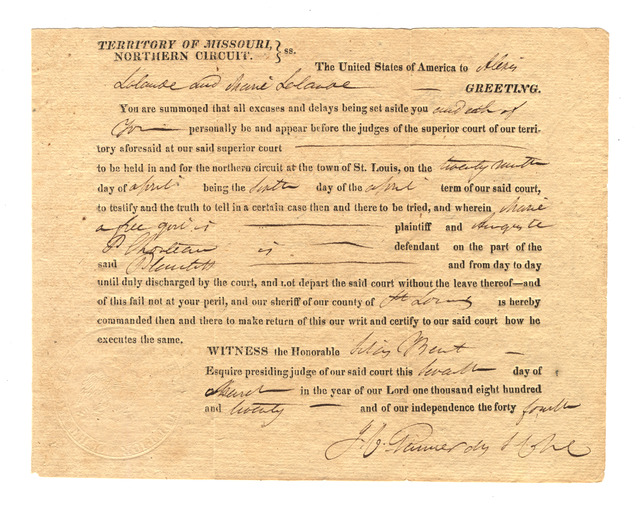 TERRITORY OF MISSOURI, } ss.
NORTHERN CIRCUIT.
The United States of America to Alexis
Lalande and Marie Lalande — GREETING.
You are summoned that all excuses and delays being set aside you and each of
You personally be and appear before the judges of the superior court of our terri-
tory aforesaid at our said superior court
to be held in and for the northern circuit at the town of St. Louis, on the twenty ninth
day of april being the day of the april term of our said court,
to testify and the truth to tell in a certain case then and there to be tried, and wherein Marie
a free girl is plaintiff and Auguste
P. Chouteau is defendant on the part of the
said Plaintiff and from day to day
until duly discharged by the court, and not depart the said court without the leave thereof—and
of this fail not at your peril, and our sheriff of our county of St Louis is hereby
commanded then and there to make return of this our writ and certify to our said court how he
executes the same.
WITNESS the Honorable Silas Bent —
Esquire presiding judge of our said court this day of
in the year of our Lord one thousand eight hundred
and twenty — and of our independence the forty fourth